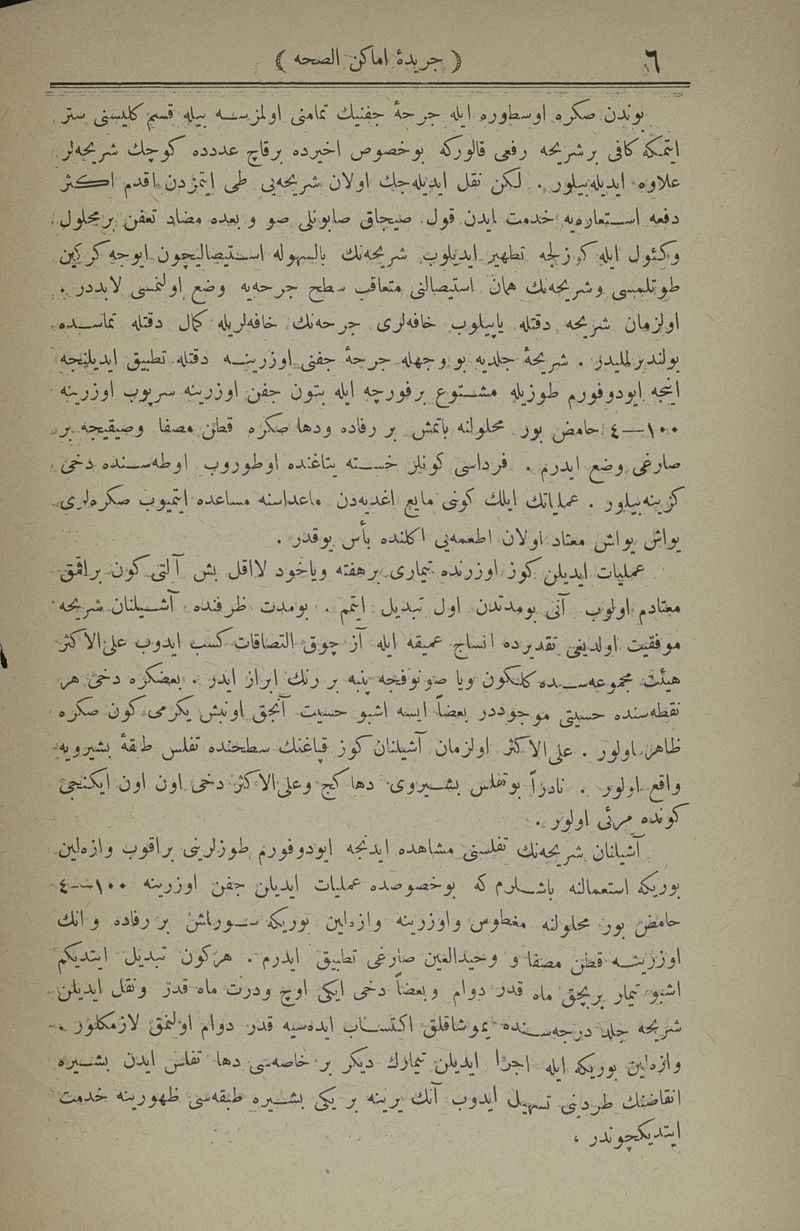 ٦
( جريدهٔ اماكن الصحه )
بوندن صكره اوسطوره ايله جرحهٔ جفنيك تمامنى اولمزسه بيله قسم كليسنى ستر
ايتمكه كافى بر شريحه رفعى قالوركه بوخصوص اخيرده برقاچ عددده كوچك شريحه‌لر
علاوه ايديله‌بيلور . لكن نقل ايديله‌جك اولان شريحه‌يى طى ايتمزدن اقدم اكثر
دفعه استعاره‌يه خدمت ايدن قول صيجاق صابونلى صو و بعده مضاد تعفن بر محلول
وكئول ايله كوزلجه تطهير ايديلوب شريحه‌نك بالسهوله استيصاليچون ايوجه كركين
طوتلمسى وشريحه‌نك همان استيصالنى متعاقب سطح جرحه‌يه وضع اولنمسى لابددر .
اولزمان شريحه دقتله ياپيلوب حافه‌لرى جرحه‌نك حافه‌لريله كمال دقتله تماسده
بولنديرلمليدر . شريحهٔ جلديه بو وجهله جرحهٔ جفنى اوزرينه دقتله تطبيق ايدلينجه
اينجه ايودوفورم طوزيله مشبوع برفورچه ايله بتون جفن اوزرينه سرپوب اوزرينه
١٠٠—٤ حامض بور محلولنه باتمش بر رفاده ودها صكره قطن مصفا وصيقيجه بر
صارغى وضع ايدرم . فرداسى كونلر خسته يتاغنده اوطوروب اوطه‌سنده دخى
كزينه‌بيلور . عملياتك ايلك كونى مايع اغديه‌دن ماعداسنه مساعده ايتميوب صكره‌لرى
يواش يواش معتاد اولان اطعمه‌يى اكلنده بأس يوقدر .
عمليات ايديلن كوز اوزرنده تيمارى برهفته وياخود لااقل بش آلتى كون براقمق
معتادم اولوب آنى بومدتدن اول تبديل ايتمم . بومدت ظرفنده آشيلنان شريحه
موفقيت اولديغى تقديرده انساج عميقه ايله آز چوق التصاقات كسب ايدوب على الاكثر
هيئت مجموعه‌سنده كلكون ويا صونوقجه پنبه بر رنك ابراز ايدر . بعضكره دخى هر
نقطه‌سنده حسيتى موجوددر بعضاً ايسه اشبو حسيت آنجق اونبش يكرمى كون صكره
ظاهر اولور . على الاكثر اولزمان آشيلنان كوز قپاغنك سطحنده تفلس طبقهٔ بشيرويه
واقع اولور . نادراً بوتفلس بشيروى دها كچ وعلى الاكثر دخى اون اون ايكنجى
كونده مرئى اولور .
آشيلنان شريحه‌نك تفلسنى مشاهده ايدنجه ايودوفورم طوزلرينى براقوب وازه‌لين
بوريكه استعمالنه باشلارم كه بوخصوصده عمليات ايديلن جفن اوزرينه ١٠٠—٤
حامض بور محلولنه مغطوس واوزرينه وازه‌لين بوريكه سورلمش بر رفاده وانك
اوزرينه قطن مصفا و وحيدالعين صارغى تطبيق ايدرم . هركون تبديل ايتديكم
اشبو تيمار بربچق ماه قدر دوام وبعضاً دخى ايكى اوچ ودرت ماه قدر ونقل ايديلن
شريحه جلد درجه‌سنده يوموشاقلق اكتساب ايده‌سيه قدر دوام اولنمق لازمكلور .
وازه‌لين بوريكه ايله اجرا ايديلن تيمارك ديكر بر خاصه‌سى دها تفلس ايدن بشيره
انقاضنك طردنى تسهيل ايدوب آنك يرينه بر يكى بشيره طبقه‌سى ظهورينه خدمت
ايتديكچوندر ،